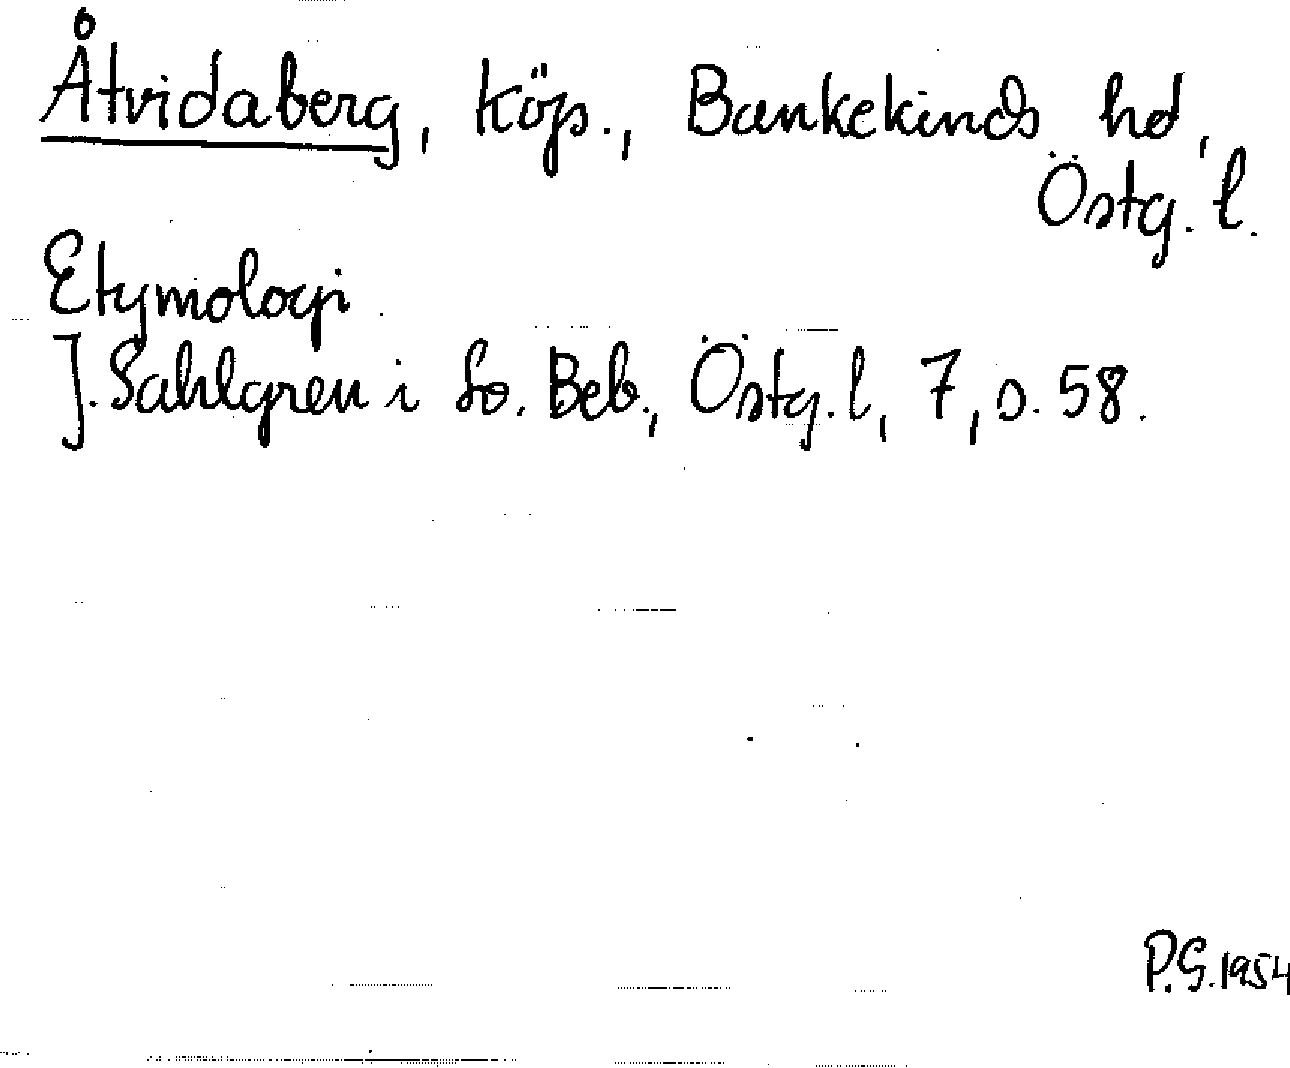 Åtvidaberg, köp., Bankekinds hd,
Östg. l.
Etymologi.
J. Sahlgren i Sv. Beb., Östg. l, 7, s. 58.
P.G. 1954